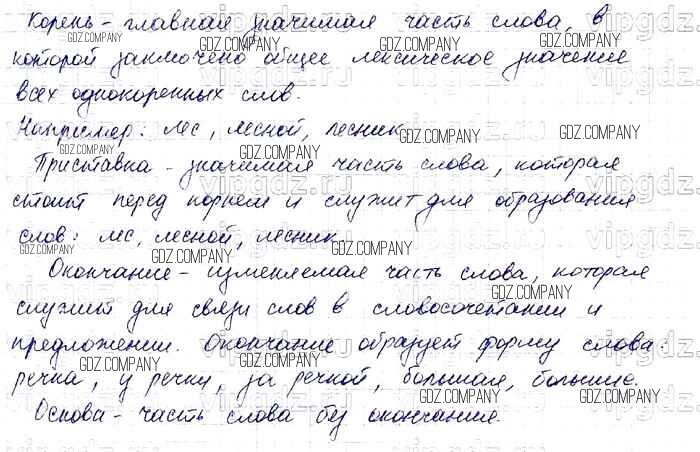 Корень - главная значимая часть слова, в
которой заключено общее лексическое значение
всех однокоренных слов.
Например: лес, лесной, лесник
Приставка - значимая часть слова, которая
стоит перед корнем и служит для образования
слов: лес, лесной, лесник.
Окончание - изменяемая часть слова, которая
служит для связи слов в словосочетании и
предложении. Окончание образует форму слова:
речка, у речки, за речкой, большая, большие.
Основа - часть слова без окончания.